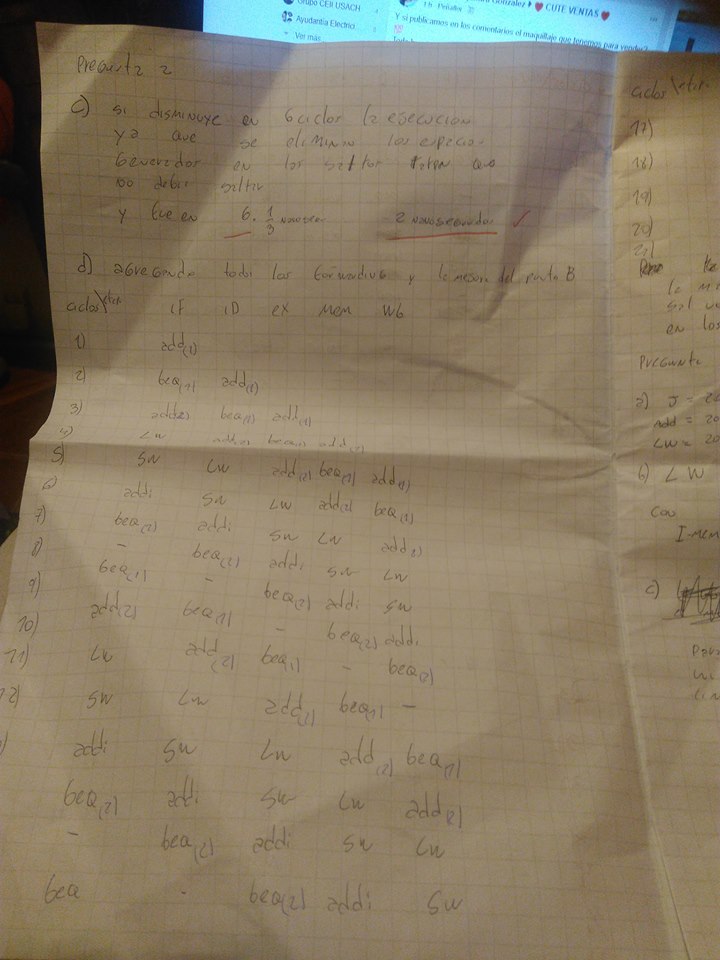 Grupo CEII USACH
Ayudantía Electrici
Ver más
1 h · Peñaflor
CUTE VENTAS
Y si publicamos en los comentarios el maquillaje que tenemos para vender?
Pregunta 2
c) si disminuye en 6 ciclos la ejecucion
ya que se eliminan los espacios
Generados en los que
no debia saltar
y que en 6 · 1/3 nanoseg 2 nanosegundos ✓
d) agregando todos los forwarding y la mejora del punto B
ciclos\etap IF ID EX MEM Wb
1) add(1)
2) beq(1) add(1)
3) add(2) beq(1) add(1)
4) LW add(2) beq(1) add(1)
5) SW LW add(2) beq(1) add(1)
6) addi SW LW add(2) beq(1)
7) beq(2) addi SW LW add(2)
8) - beq(2) addi SW LW
9) beq(1) - beq(2) addi SW
10) add(2) beq(1) - beq(2) addi
11) LW add(2) beq(1) - beq(2)
2) SW LW add(2) beq(1) -
) addi SW LW add(2) beq(1)
beq(2) addi SW LW add(2)
- beq(2) addi SW LW
beq - beq(2) addi SW
ciclos\etap
17)
18)
19)
20)
21)
en los
Pregunta
a) J = 2
Add = 20
LW = 20
b) LW
Con
I-mem
c)